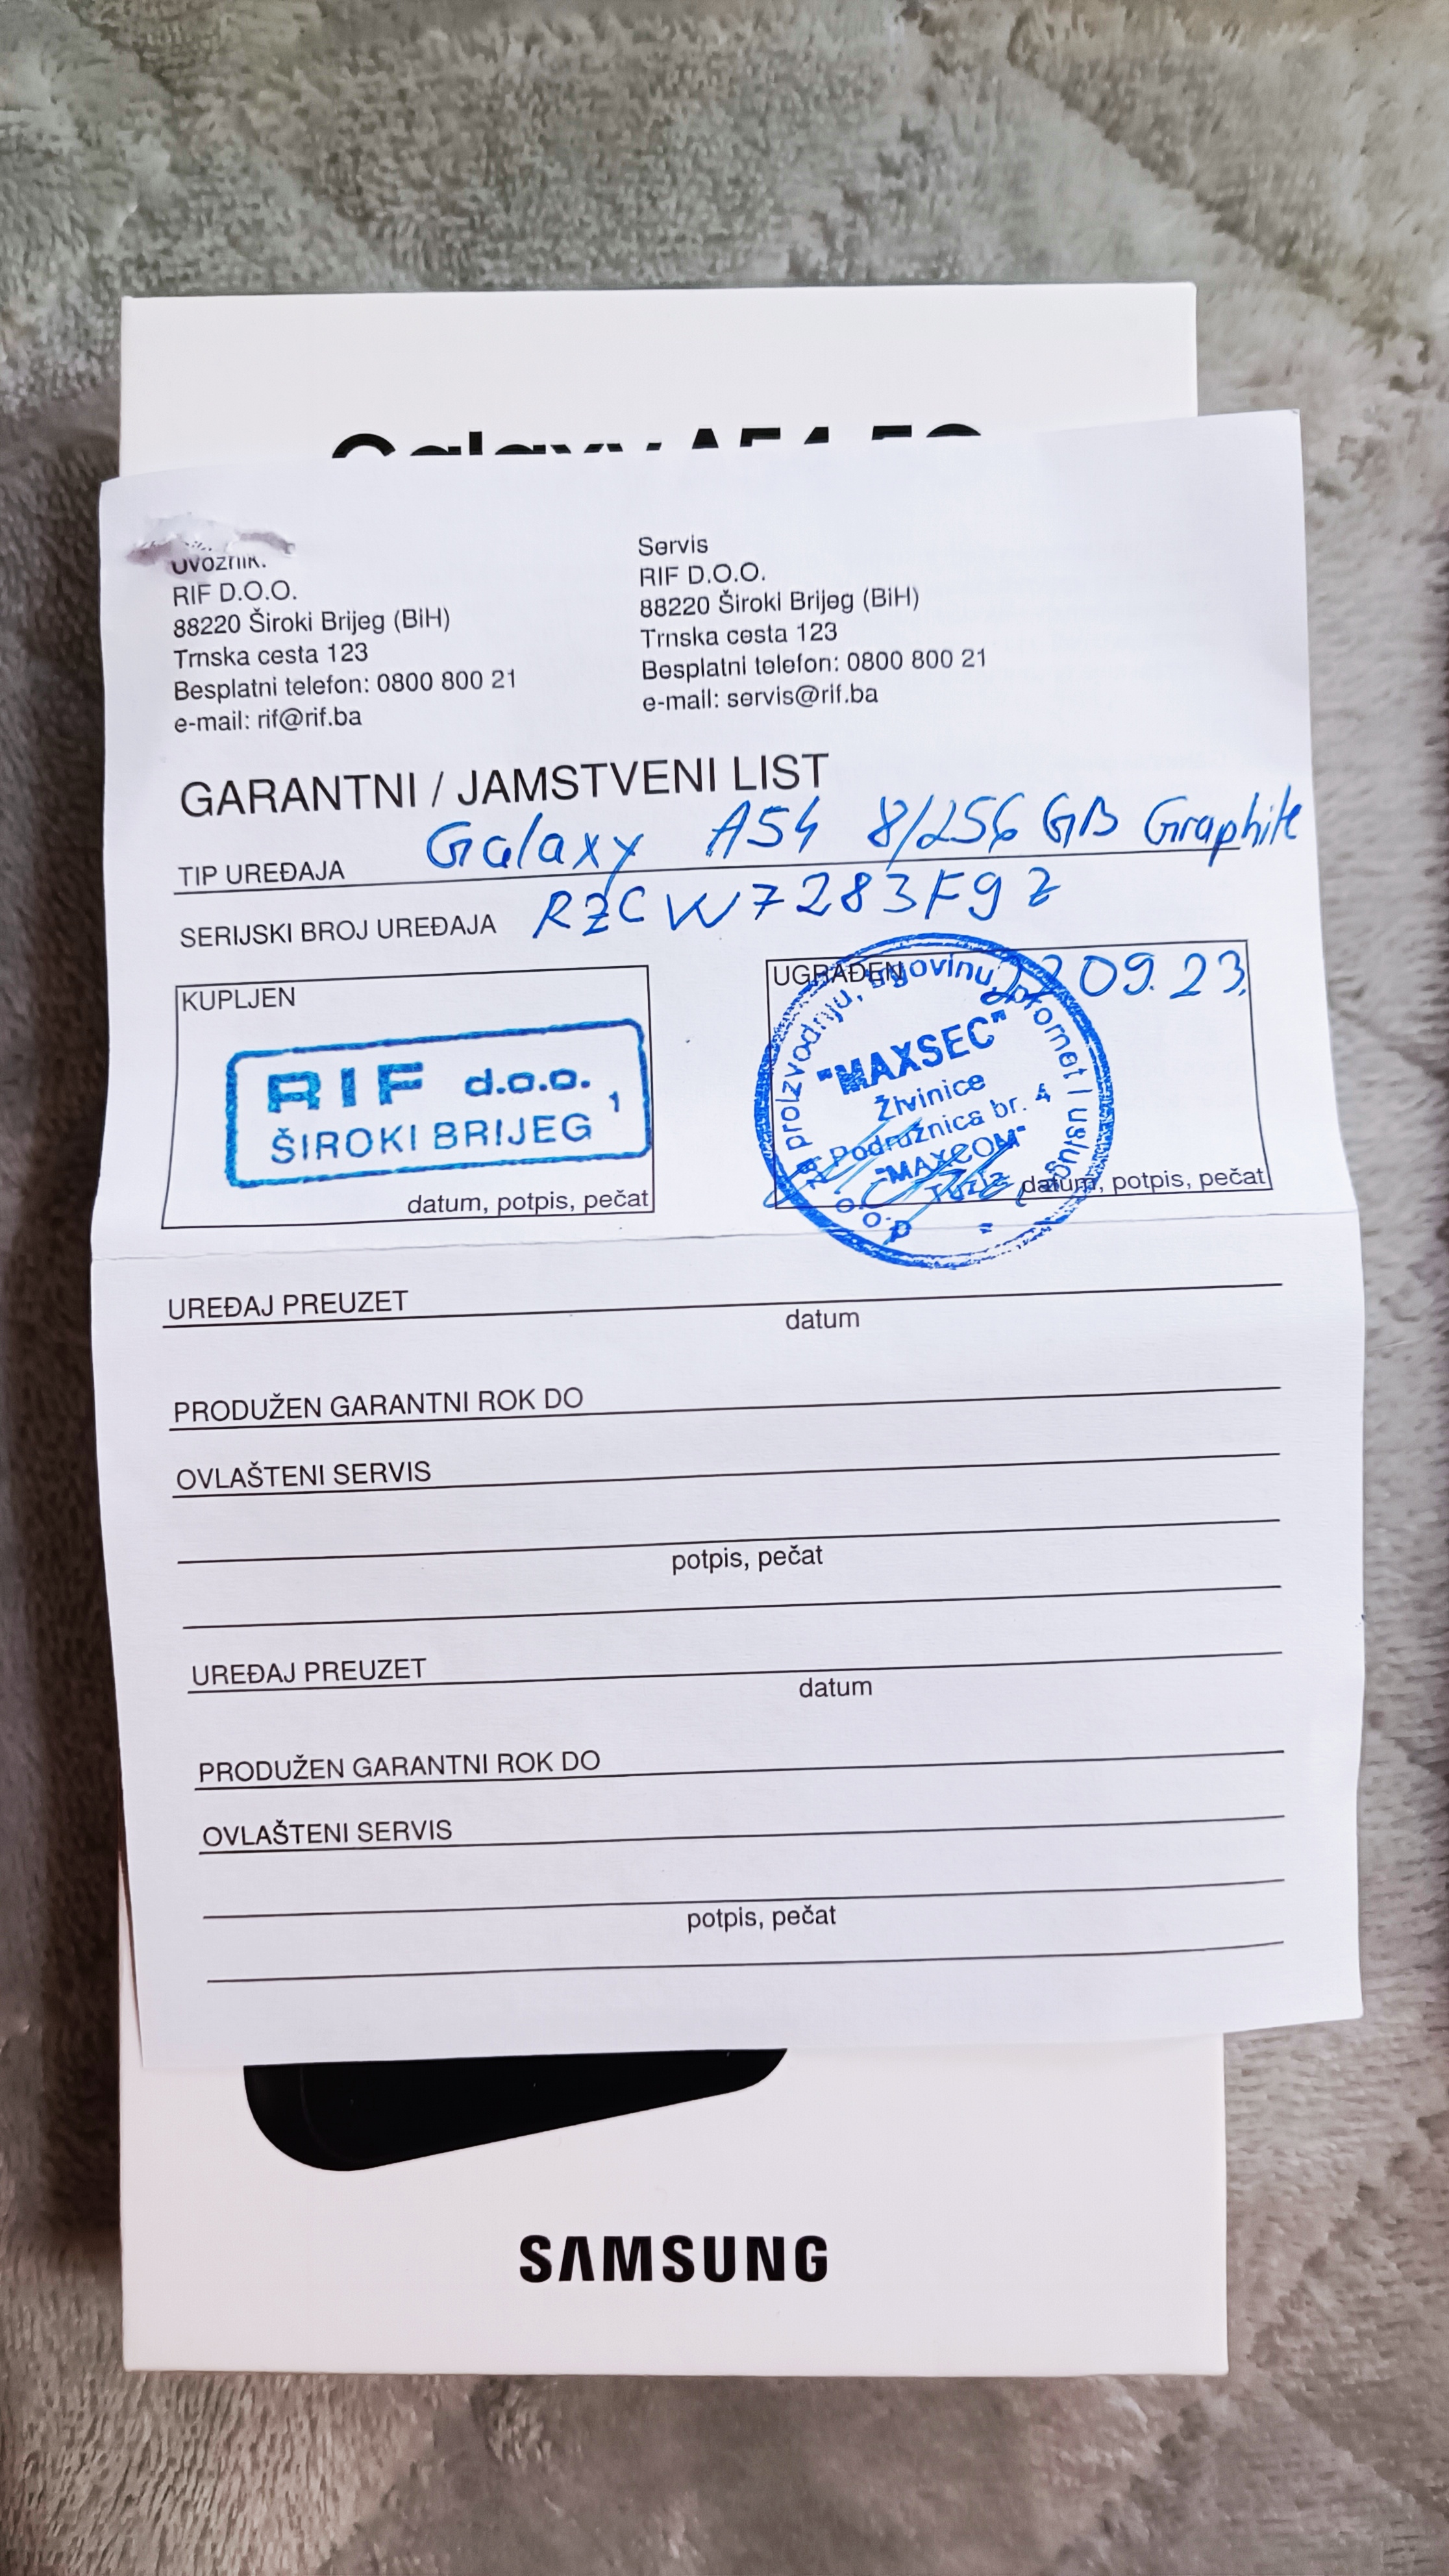 Galaxy A54 5G
Uvoznik:
RIF D.O.O.
88220 Široki Brijeg (BiH)
Trnska cesta 123
Besplatni telefon: 0800 800 21
e-mail: rif@rif.ba
Servis
RIF D.O.O.
88220 Široki Brijeg (BiH)
Trnska cesta 123
Besplatni telefon: 0800 800 21
e-mail: servis@rif.ba
GARANTNI / JAMSTVENI LIST
TIP UREĐAJA Galaxy A54 8/256 GB Graphite
SERIJSKI BROJ UREĐAJA RZCW7283F9Z
KUPLJEN
RIF d.o.o. 1
ŠIROKI BRIJEG
datum, potpis, pečat
UGRAĐEN 09.23.
d.o.o. za proizvodnju, trgovinu, promet i usluge
"MAXSEC"
Živinice
Podružnica br. 4
"MAXCOM"
Tuzla
datum, potpis, pečat
UREĐAJ PREUZET
datum
PRODUŽEN GARANTNI ROK DO
OVLAŠTENI SERVIS
potpis, pečat
UREĐAJ PREUZET
datum
PRODUŽEN GARANTNI ROK DO
OVLAŠTENI SERVIS
potpis, pečat
SAMSUNG